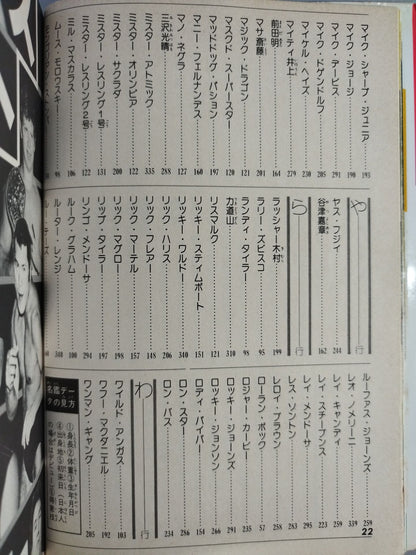 マイク・シャープ・ジュニア 193
マイク・ジョージ 190
マイク・デービス 291
マイク・ドゲンドルフ 205
マイケル・ヘイズ 230
マイティ井上 279
前田明 164
マサ斎藤 201
マジック・ドラゴン 121
マスクド・スーパースター 120
マッドドッグ・バション 197
マニー・フェルナンデス 160
マノ・ネグラ 127
三沢光晴 288
ミスター・アトミック 335
ミスター・オリンピア 133
ミスター・サクラダ 200
ミスター・レスリング1号 131
ミスター・レスリング2号 122
ミル・マスカラス 106
ムース・モロウスキー 98
や行
ヤス・フジイ 244
谷津嘉章 162
ら行
ラッシャー木村 199
ラリー・ズビスコ 95
ランディ・タイラー 98
力道山 310
リスマルク 121
リッキー・スティムボート 131
リッキー・ワルドー 320
リック・ハリス 206
リック・フレアー 148
リック・マーテル 157
リック・マグロー 198
リップ・タイラー 197
リンゴ・メンドーサ 294
ルーク・グラハム 100
ルーター・レンジ 340
ルー・テーズ
ルーファス・ジョーンズ 259
レオ・ノメリーニ 339
レイ・キャンディ 278
レイ・スチーブンス 291
レイ・メンドーサ 245
レス・ソントン 258
レロイ・ブラウン 57
ローラン・ボック 235
ロジャー・カービー 291
ロッキー・ジョーンズ 266
ロッキー・ジョンソン 151
ロディ・パイパー 154
ロン・スター 286
ロン・バス 234
わ行
ワイルド・アンガス 103
ワフー・マクダニエル 192
ワンマン・ギャング 205
名鑑データの見方
①身長②体重③生年月日
④出身地⑤初来日（日本人
22